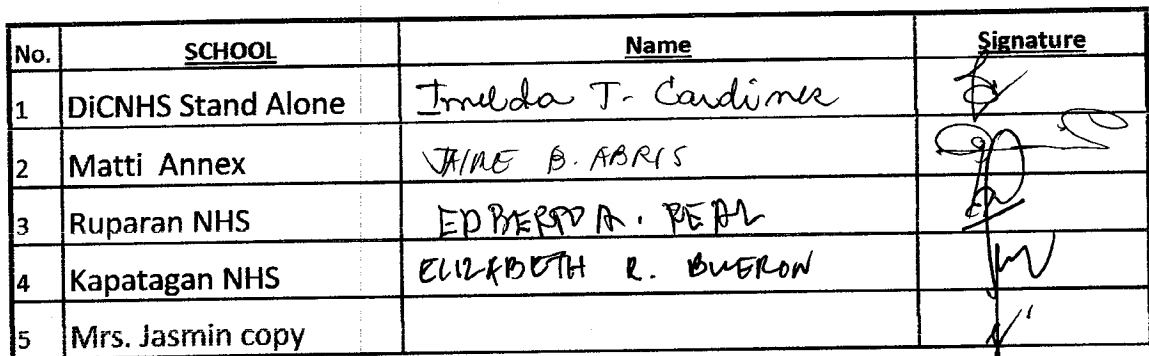 No. SCHOOL Name Signature
1 DiCNHS Stand Alone Imelda T. Cardines
2 Matti Annex JAIME B. ABRIS
3 Ruparan NHS EDBERTO A. REAL
4 Kapatagan NHS ELIZABETH R. BUERON
5 Mrs. Jasmin copy